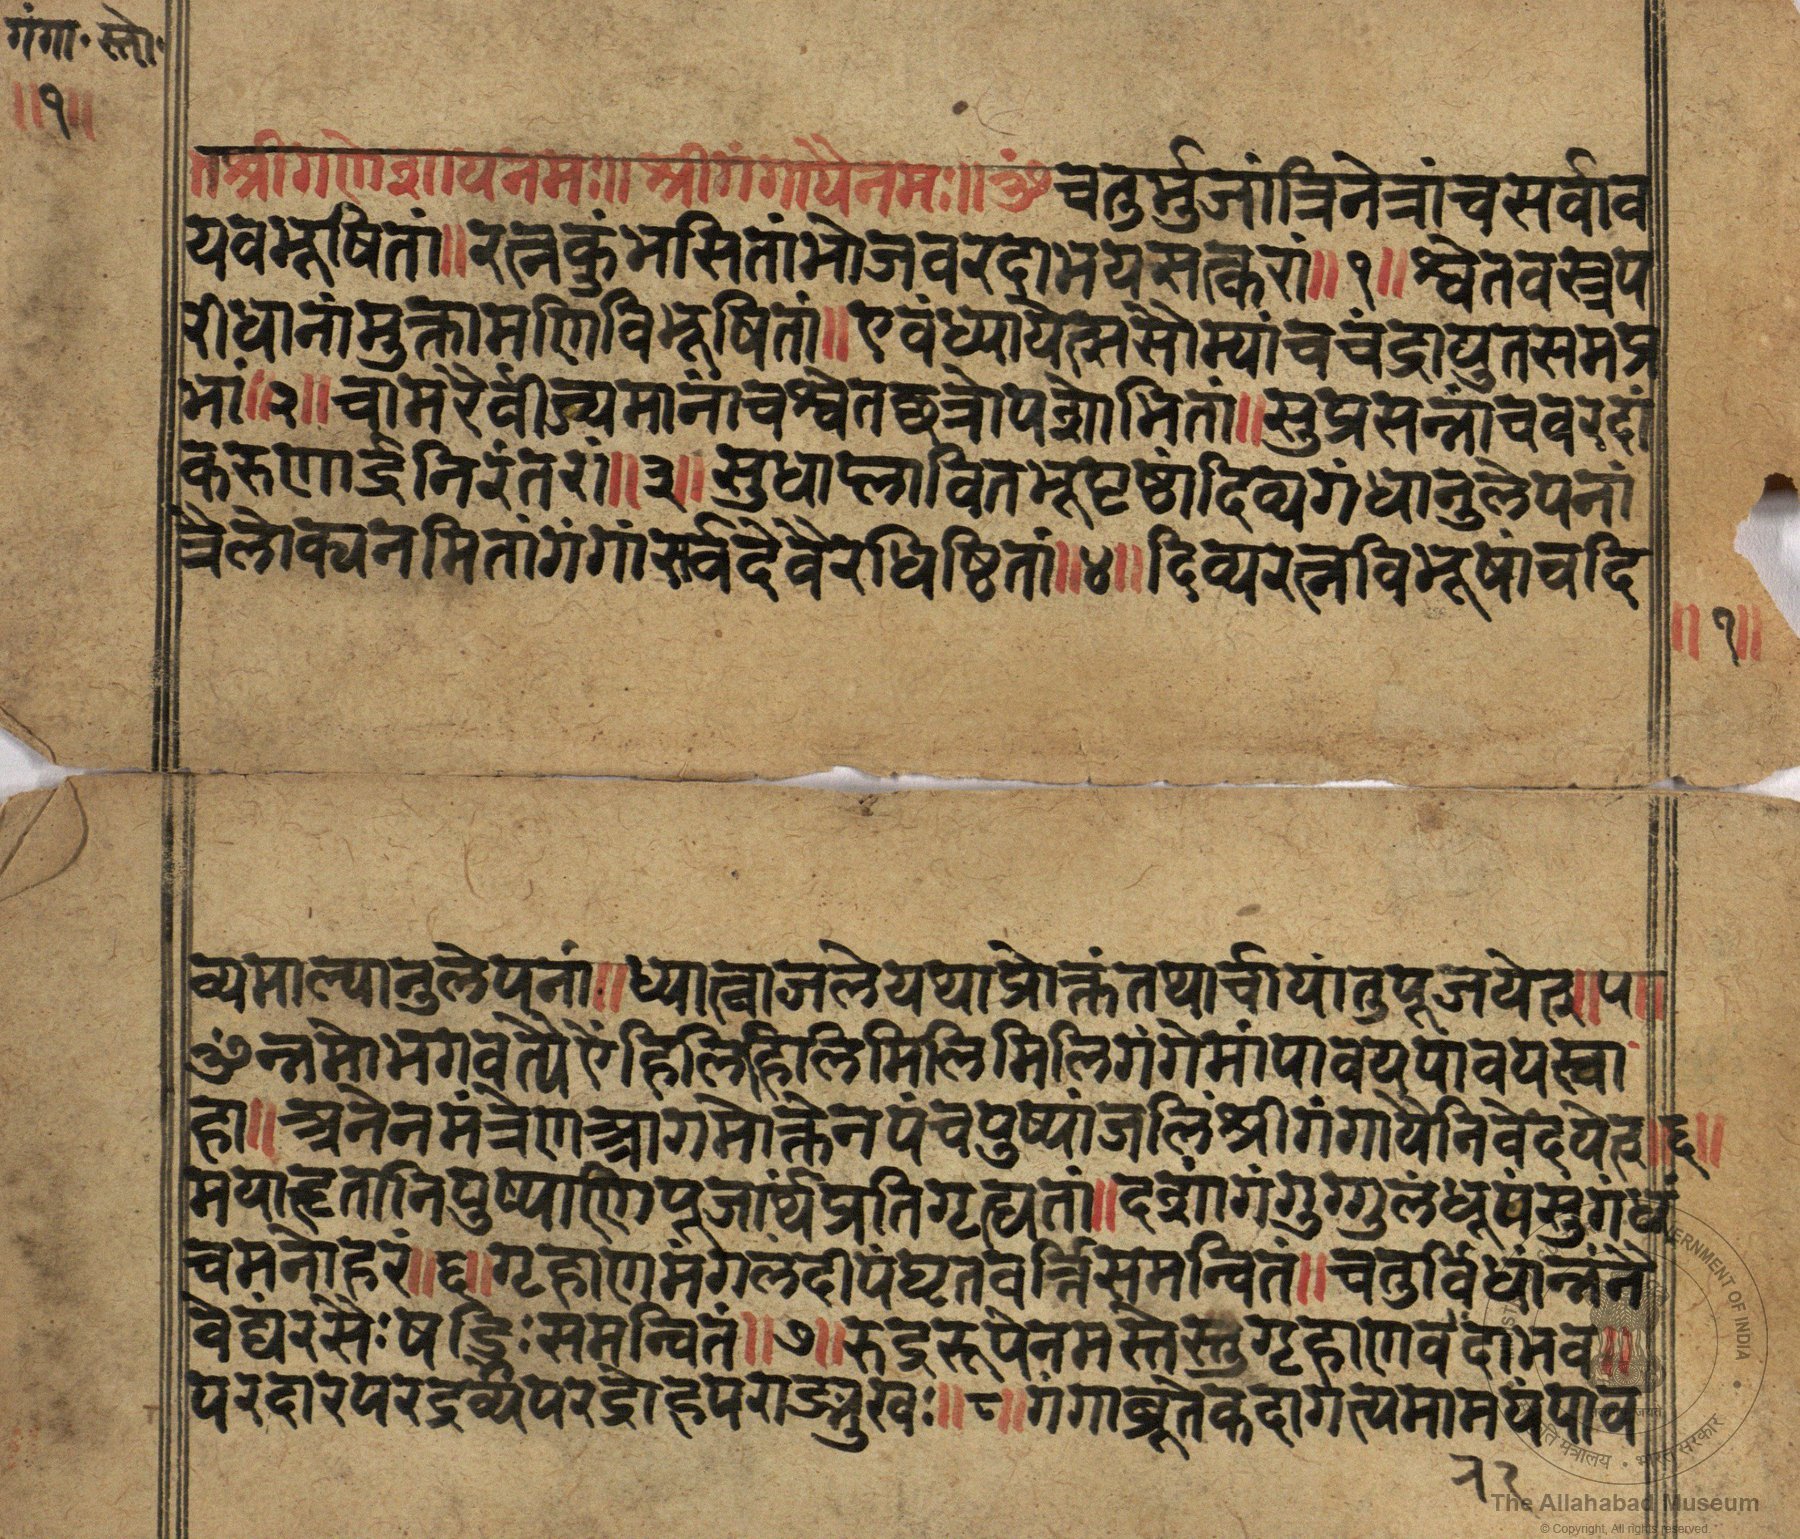 गंगा॰स्तो॰
॥१॥
॥श्रीगणेशायनमः॥श्रीगंगायैनमः॥ॐचतुर्भुजांत्रिनेत्रांचसर्वाव
यवभूषितां॥रत्नकुंभसितांभोजवरदाभयसत्करां॥१॥श्वेतवस्त्रप
रीधानांमुक्तामणिविभूषितां॥एवंध्यायेत्ससौम्यांचचंद्रायुतसमप्र
भां॥२॥चामरैर्वीज्यमानांचश्वेतछत्रोपशोभितां॥सुप्रसन्नांचवरदां
करुणार्द्रनिरंतरां॥३॥सुधाप्लावितभूपृष्ठांदिव्यगंधानुलेपनां
त्रैलोक्यनमितांगंगांसर्वदेवैरधिष्ठितां॥४॥दिव्यरत्नविभूषांचदि
॥१॥
व्यमाल्यानुलेपनां॥ध्यात्वाजलेयथाप्रोक्तंतथार्चायांतुपूजयेत्॥५॥
ॐन्नमोभगवत्यैऐंहिलिहिलिमिलिमिलिगंगेमांपावयपावयस्वा
हा॥अनेनमंत्रेणआगमोक्तेनपंचपुष्पांजलिंश्रीगंगायैनिवेदयेत्॥६॥
मयाहृतानिपुष्पाणिपूजार्थंप्रतिगृह्यतां॥दशांगंगुग्गुलंधूपंसुगंधं
चमनोहरं॥६॥गृहाणमंगलंदीपंघृतवर्त्तिसमन्वितं॥चतुर्विधांन्नंनै
वेद्यंरसैःषड्भिःसमन्वितं॥७॥रुद्ररूपेनमस्तेस्तुगृहाणवरदाभव॥
परदारपरद्रव्यपरद्रोहपराङ्मुखः॥८॥गंगाब्रूतेकदागत्यमामयंपाव
The Allahabad Museum
© Copyright, All rights reserved.